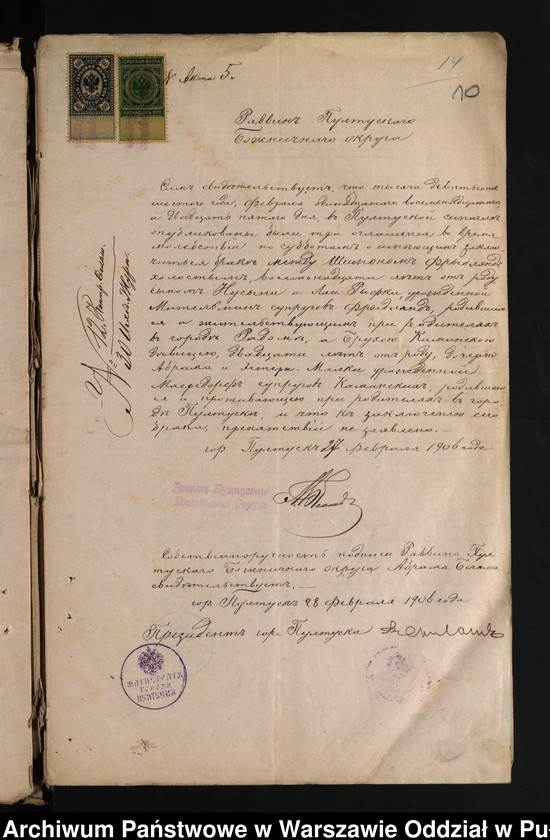 № Акта 5.
14
10
Раввинъ Пултускаго
Божничнаго округа
Симъ свидѣтельствуетъ, что тысяча девятьсотъ
шестого года, февраля
и двадцать пятаго дня, въ Пултуской синагогѣ
опубликованы были три оглашенія во время
молебствій по субботамъ о имѣющемъ заклю-
читься бракѣ между Шлыомомъ Фрыдляндъ
холостымъ, восемнадцати лѣтъ отъ роду
сыномъ Нусына и Леи Рыфки, урожденной
Мительманъ супруговъ Фрыдляндъ, родившим-
ся и жительствующимъ при родителяхъ
въ городѣ Радомѣ, а Брухою Каминскою
дѣвицею, двадцати лѣтъ отъ роду, дочерью
Абрама и Эстеры Малки урожденной
супруговъ Каминскихъ, родившею-
ся и проживающею при родителяхъ въ горо-
дѣ Пултускѣ, и что къ заключенію сего
брака, препятствій не заявлено. —
гор Пултускъ 27 февраля 1906 года
Раввинъ Пултускаго
Божничнаго Округа
Собственноручность подписи Раввина Пул-
тускаго Божничнаго округа Абрама
свидѣтельствуетъ. —
гор Пултускъ 28 февраля 1906 года
Президентъ гор Пултуска
МАГИСТРАТЪ
ГОРОДА
ПУЛТУСКА
Archiwum Państwowe w Warszawie Oddział w Pu